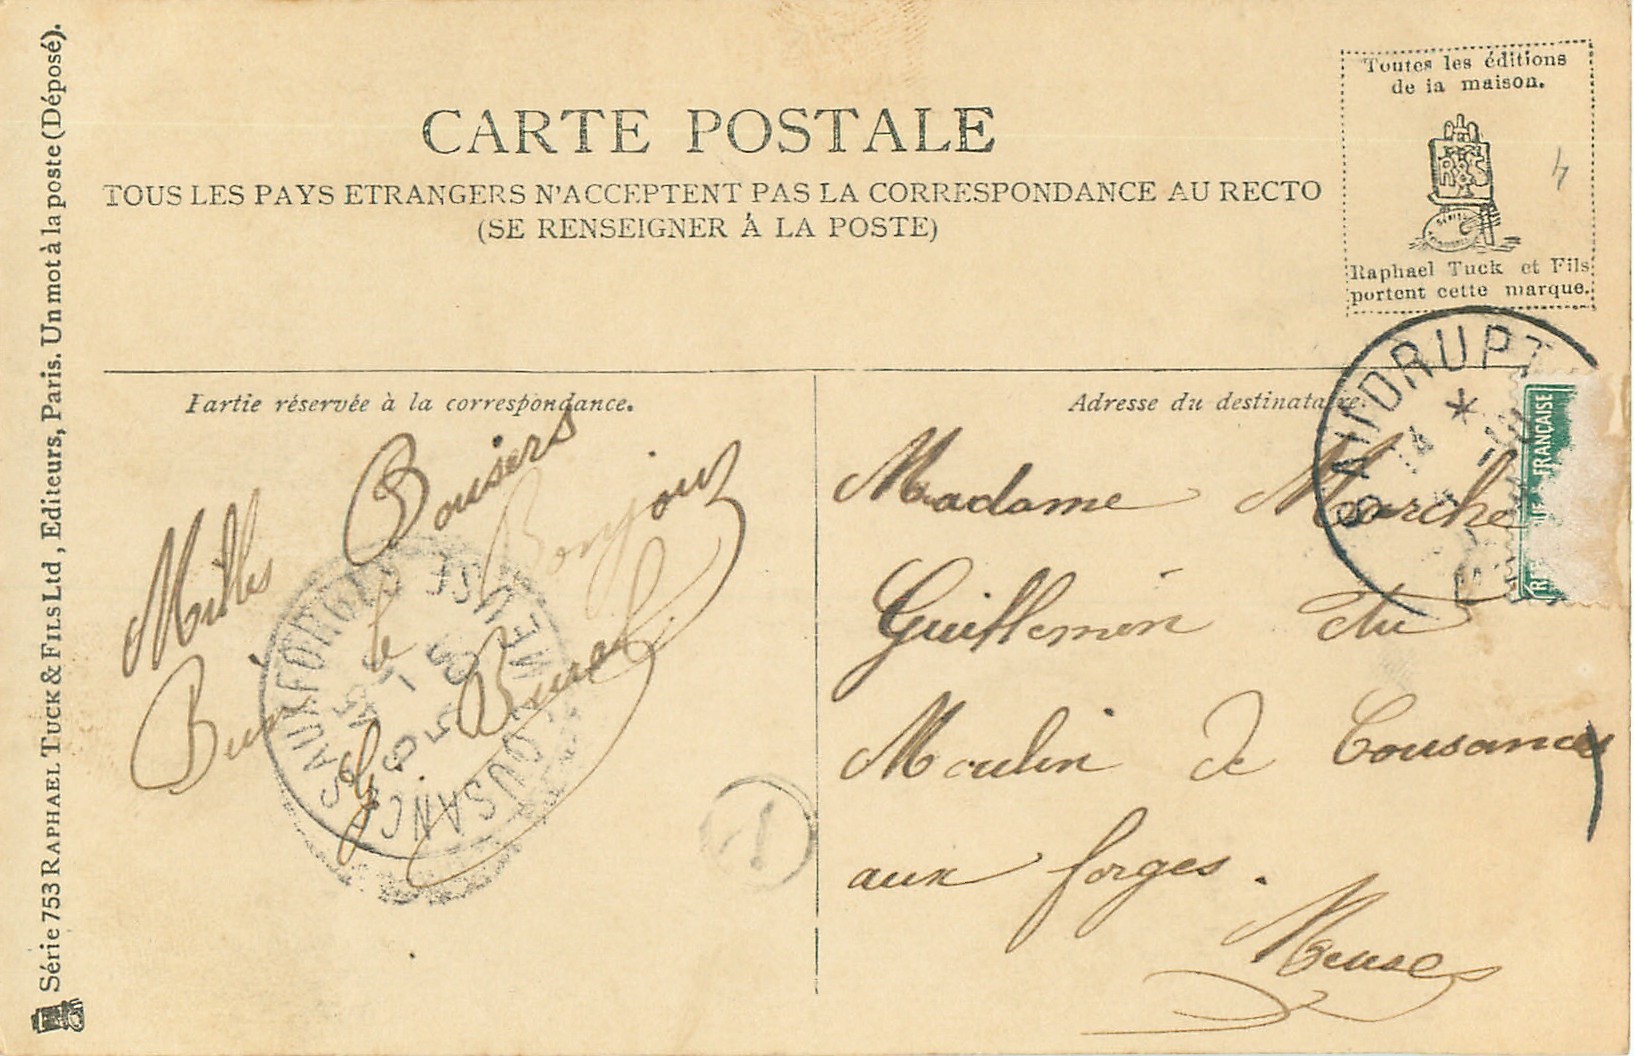 Série 753 RAPHAEL TUCK & FILS Ltd, Editeurs, Paris. Un mot à la poste (Déposé).
CARTE POSTALE
TOUS LES PAYS ETRANGERS N'ACCEPTENT PAS LA CORRESPONDANCE AU RECTO
(SE RENSEIGNER À LA POSTE)
Toutes les éditions
de la maison.
Raphael Tuck et Fils
portent cette marque.
4
Partie réservée à la correspondance.
Milles Bousers
Bonjour
le
Burel
COUSANCES AUX FORGES MEUSE
Adresse du destinataire.
BAUDRUPT
FRANÇAISE
Madame Marche
Guillemin du
Moulin de Cousances
aux forges.
Meuse
1